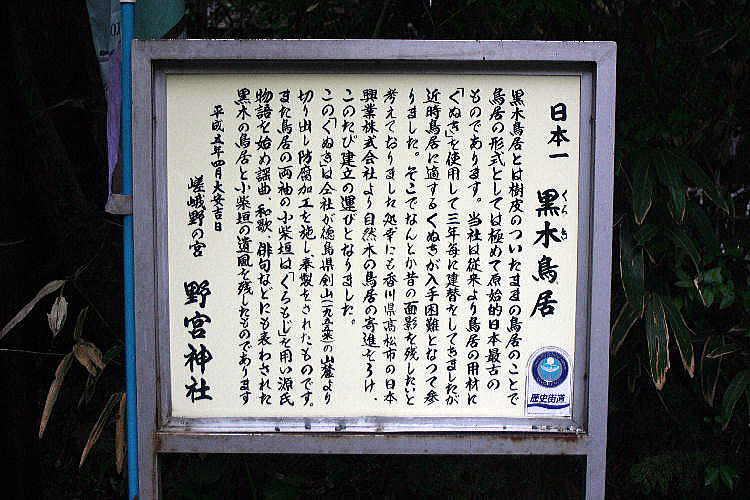 日本一 黒木鳥居
くろき
黒木鳥居とは樹皮のついたままの鳥居のことで
鳥居の形式としては極めて原始的日本最古の
ものであります。当社は従来より鳥居の用材に
「くぬぎ」を使用して三年毎に建替をしてきましたが
近時鳥居に適するくぬぎが入手困難となつて参
りました。そこでなんとか昔の面影を残したいと
考えておりました処幸にも香川県高松市の日本
興業株式会社より自然木の鳥居の寄進をうけ、
このたび建立の運びとなりました。
この「くぬぎ」は会社が徳島県剣山(一九五五米)の山麓より
切り出し防腐加工を施し、奉製をされたものです。
また鳥居の両袖の小柴垣は「くろもじ」を用い源氏
物語を始め謡曲、和歌、俳句などにも表わされた
黒木の鳥居と小柴垣の遺風を残したものであります
平成五年四月大安吉日
嵯峨野の宮 野宮神社
歴史街道